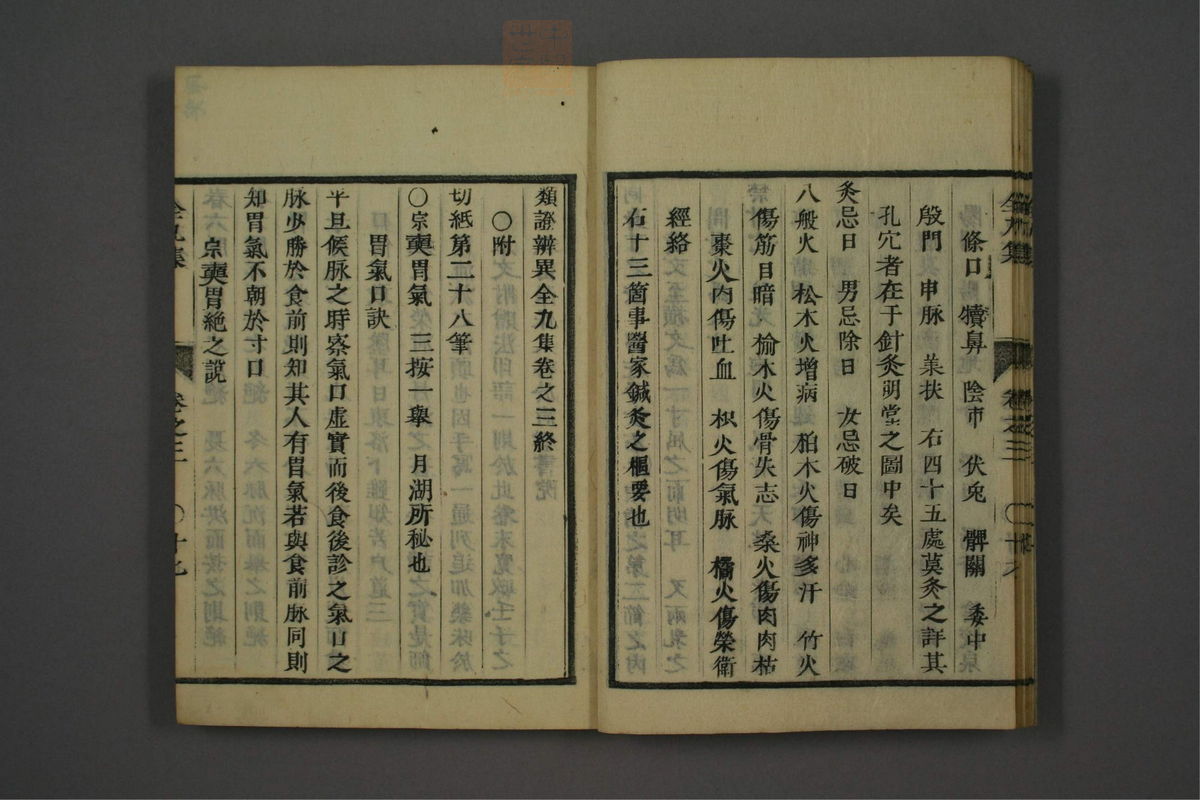 條口　犢鼻　陰市　伏兔　髀關　委中
殷門　申脉　𣴎扶　右四十五處莫灸之詳其
孔穴者在于針灸明堂之圖中矣
灸忌日　男忌除日　女忌破日
八般火　松木火增病　柏木火傷神多汗　竹火
傷筋目暗　榆木火傷骨失志　桑火傷肉肉枯
棗火內傷吐血　枳火傷氣脉　橘火傷榮衛
經絡
右十三箇事醫家鍼灸之樞要也
類證辨異全九集卷之三終
〇附
切紙第二十八筆
〇宗奭胃氣　三按一舉　月湖所秘也
胃氣口訣
平旦候脉之時察氣口虛實而後食後診之氣口之
脉少勝於食前則知其人有胃氣若與食前脉同則
知胃氣不朝於寸口
宗奭胃絶之說
卷之三　〇十九